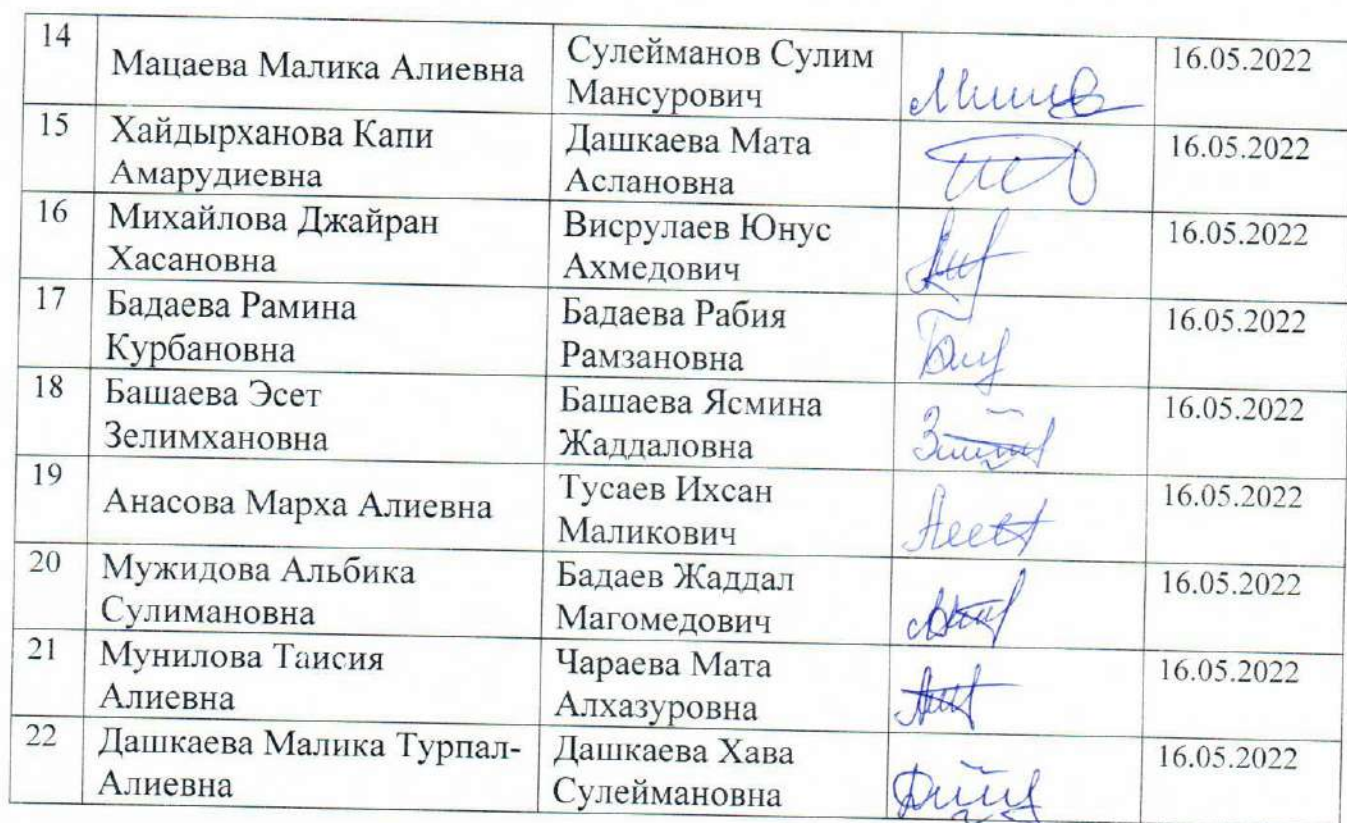 14
Мацаева Малика Алиевна
Сулейманов Сулим
Мансурович
16.05.2022
15
Хайдырханова Капи
Амарудиевна
Дашкаева Мата
Аслановна
16.05.2022
16
Михайлова Джайран
Хасановна
Висрулаев Юнус
Ахмедович
16.05.2022
17
Бадаева Рамина
Курбановна
Бадаева Рабия
Рамзановна
16.05.2022
18
Башаева Эсет
Зелимхановна
Башаева Ясмина
Жаддаловна
16.05.2022
19
Анасова Марха Алиевна
Тусаев Ихсан
Маликович
16.05.2022
20
Мужидова Альбика
Сулимановна
Бадаев Жаддал
Магомедович
16.05.2022
21
Мунилова Таисия
Алиевна
Чараева Мата
Алхазуровна
16.05.2022
22
Дашкаева Малика Турпал-
Алиевна
Дашкаева Хава
Сулеймановна
16.05.2022